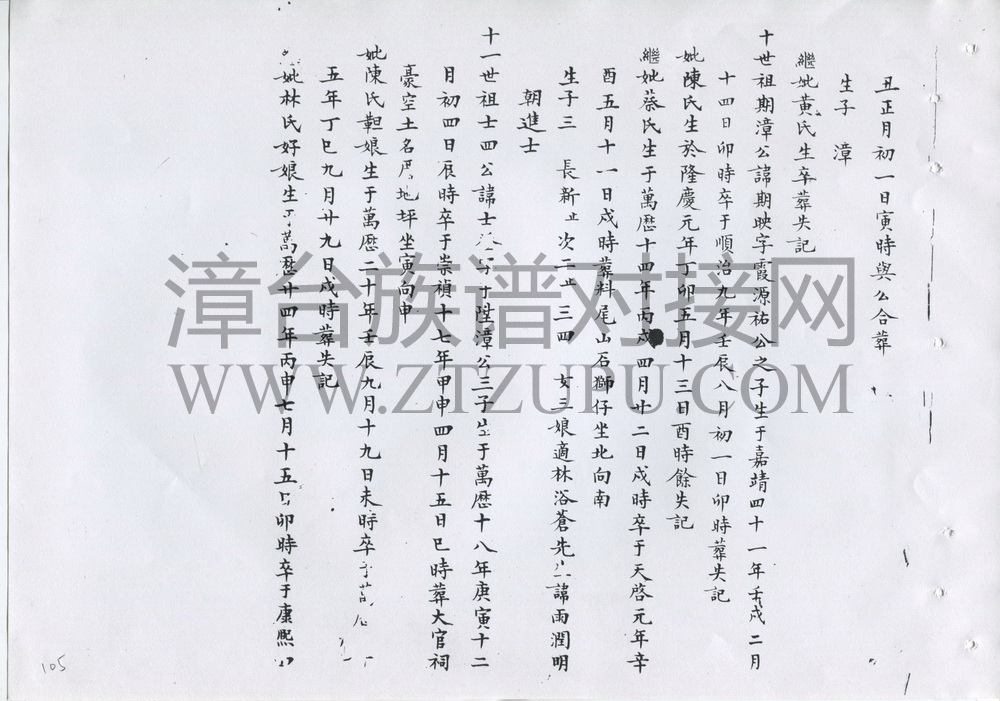 丑正月初一日寅時與公合葬
生子 漳
繼妣黃氏生卒葬失記
十世祖期漳公諱期映字霞源祐公之子生于嘉靖四十一年壬戌二月
十四日卯時卒于順治九年壬辰八月初一日卯時葬失記
妣陳氏生於隆慶元年丁卯五月十三日酉時餘失記
繼妣蔡氏生于萬歷十四年丙戌四月廿二日戌時卒于天啓元年辛
酉五月十一日戌時葬料尾山石獅仔坐北向南
生子三 長新止 次二止 三四 女三娘適林浴蒼先生諱雨潤明
朝進士
十一世祖士四公諱士 字 陞漳公三子生于萬歷十八年庚寅十二
月初四日辰時卒于崇禎十七年甲申四月十五日巳時葬大官祠
豪空土名 地坪坐寅向申
妣陳氏 娘生于萬歷二十年壬辰九月十九日未時卒于萬
五年丁巳九月廿九日戌時葬失記
妣林氏好娘生于萬歷廿四年丙申七月十五日卯時卒于康熙
105
漳台族谱对接网
WWW.ZTZUPU.COM